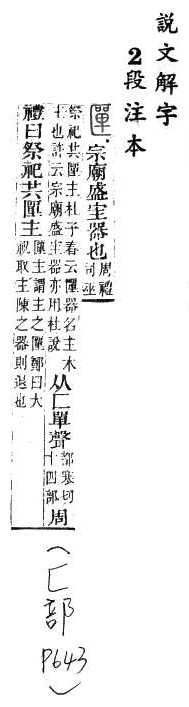 說文解字
2段注本
匰 宗廟盛宔器也 周禮司巫
祭祀共匰主杜子春云匰器名主木主也許云宗廟盛宔器亦用杜說 从匚單聲 都寒切十四部 周
禮曰祭祀共匰主 匰主謂主之匰鄭曰大祝取主陳之器則退也
(匚部 P643)